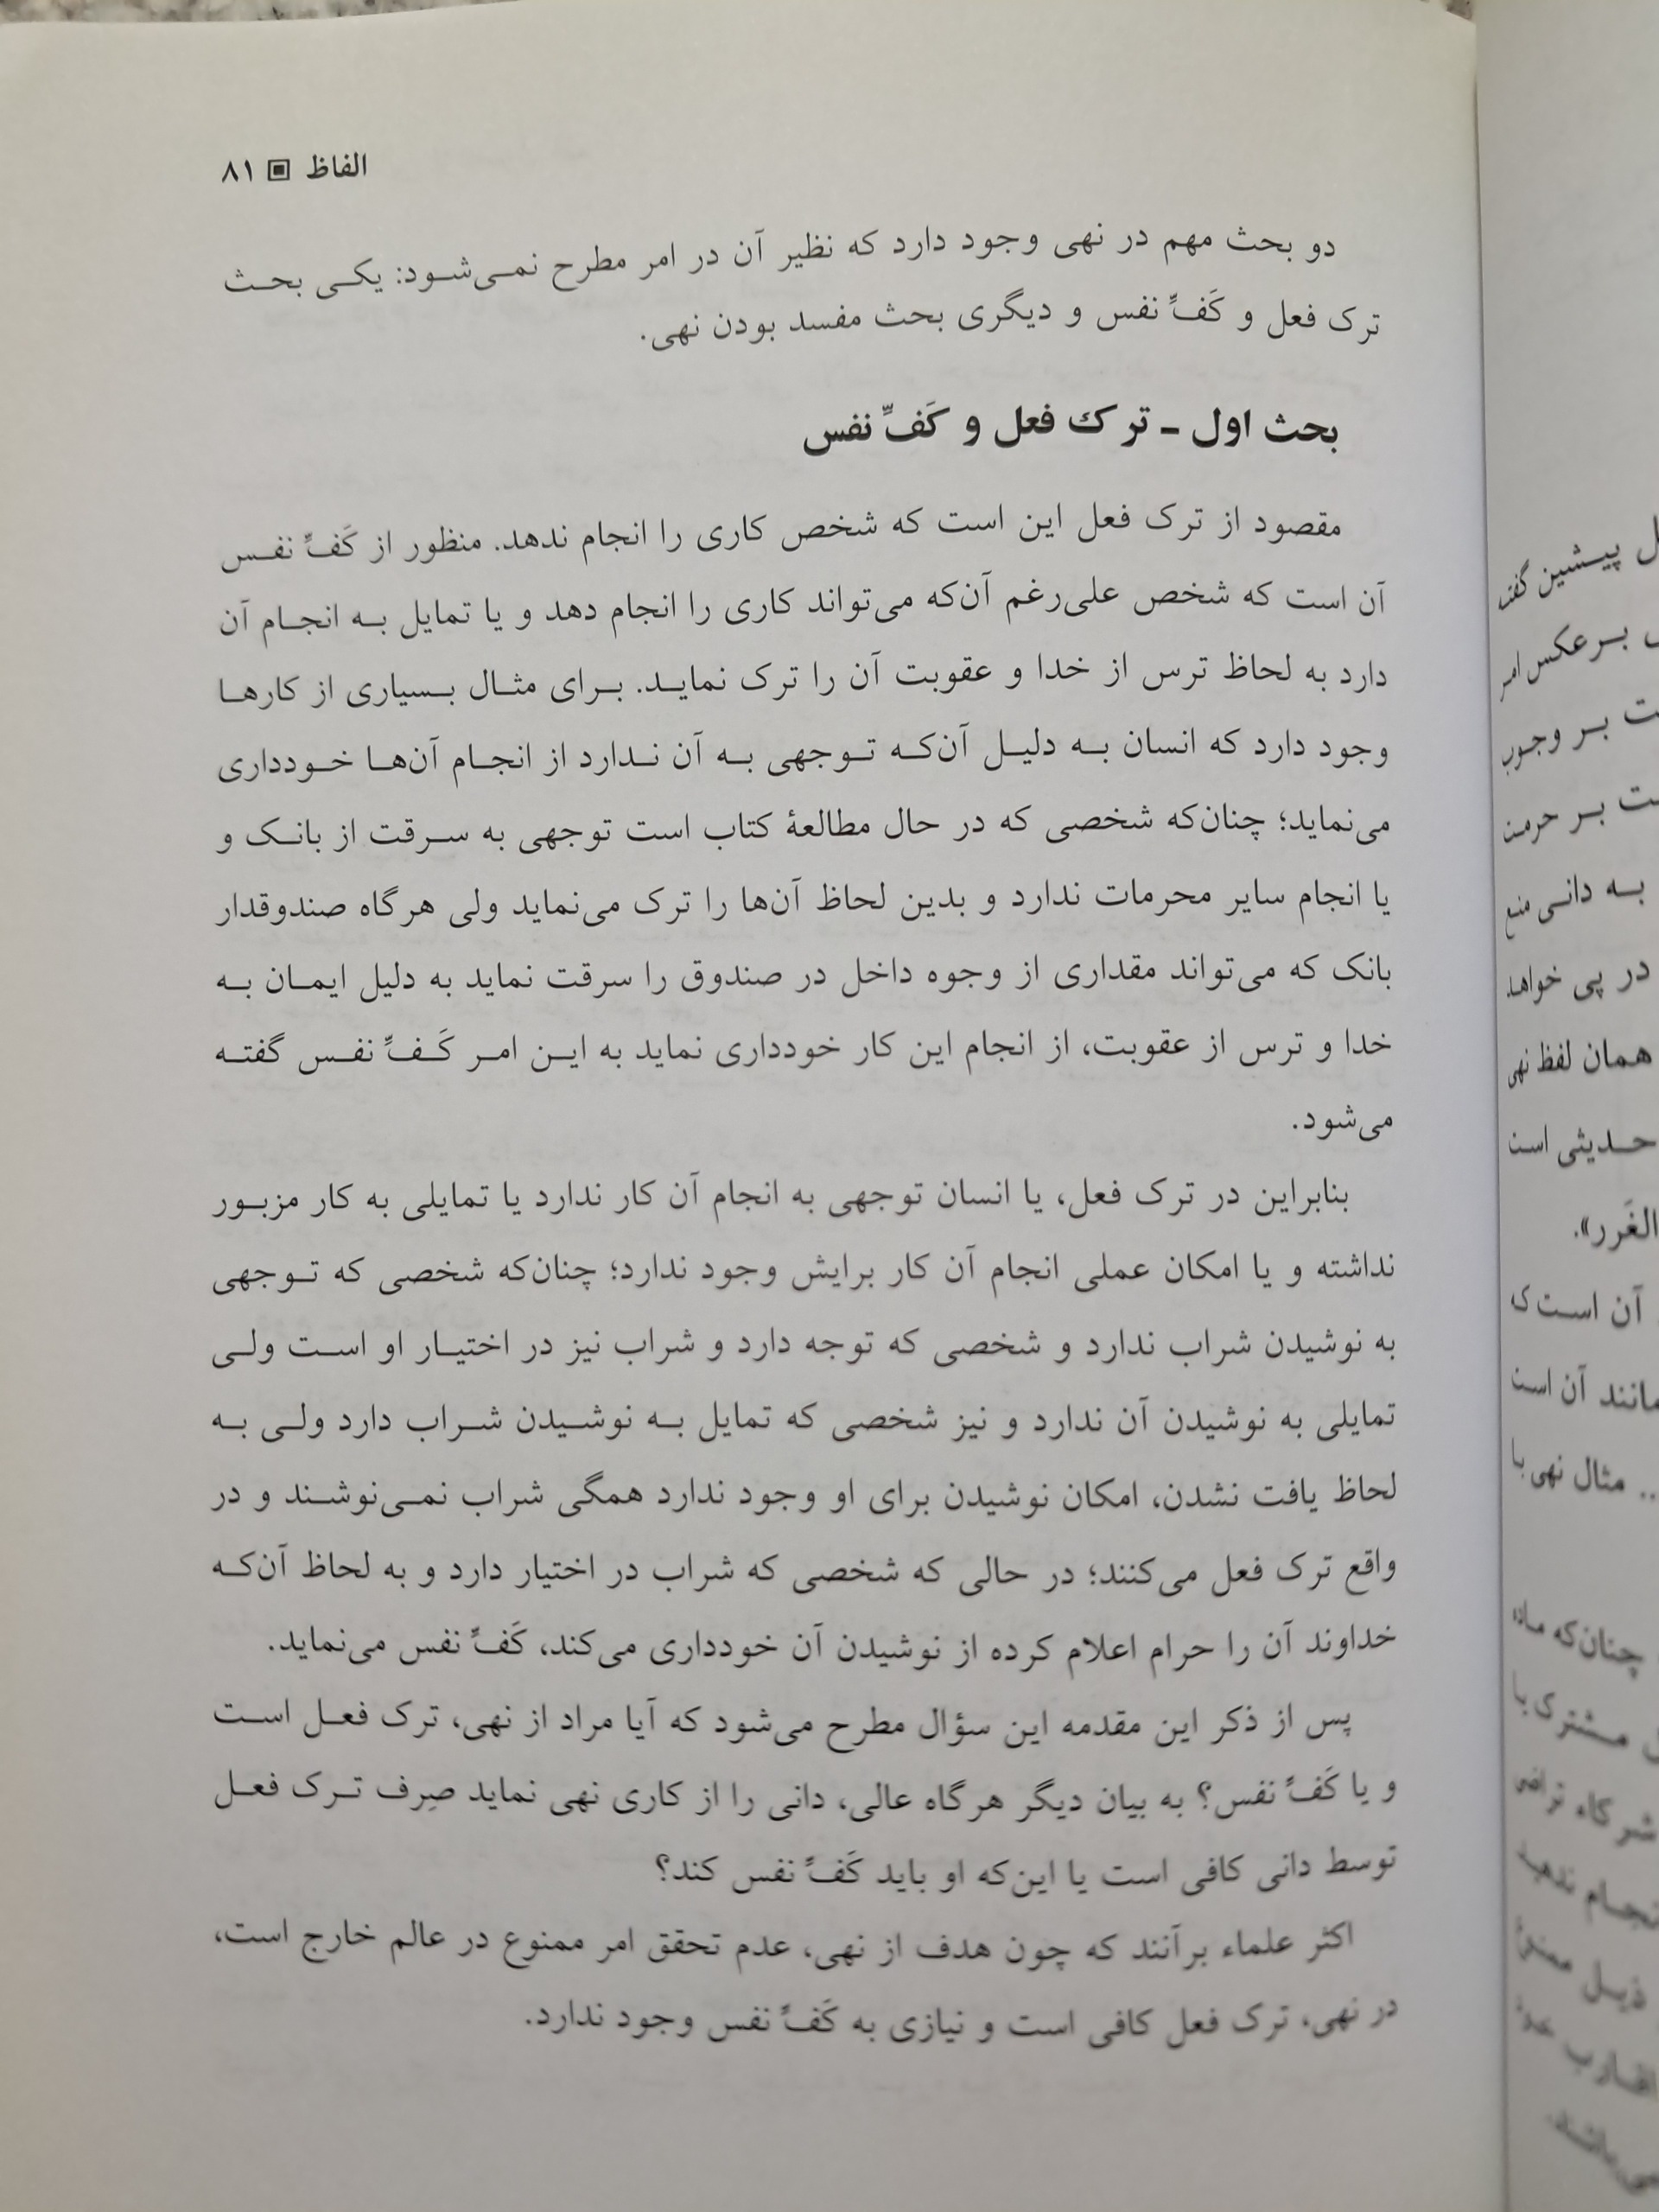 الفاظ ▣ ۸۱
دو بحث مهم در نهی وجود دارد که نظیر آن در امر مطرح نمی‌شود: یکی بحث
ترک فعل و کَفِّ نفس و دیگری بحث مفسد بودن نهی.
بحث اول - ترک فعل و کَفِّ نفس
مقصود از ترک فعل این است که شخص کاری را انجام ندهد. منظور از کَفِّ نفس
آن است که شخص علی‌رغم آن‌که می‌تواند کاری را انجام دهد و یا تمایل به انجام آن
دارد به لحاظ ترس از خدا و عقوبت آن را ترک نماید. برای مثال بسیاری از کارها
وجود دارد که انسان به دلیل آن‌که توجهی به آن ندارد از انجام آن‌ها خودداری
می‌نماید؛ چنان‌که شخصی که در حال مطالعهٔ کتاب است توجهی به سرقت از بانک و
یا انجام سایر محرمات ندارد و بدین لحاظ آن‌ها را ترک می‌نماید ولی هرگاه صندوقدار
بانک که می‌تواند مقداری از وجوه داخل در صندوق را سرقت نماید به دلیل ایمان به
خدا و ترس از عقوبت، از انجام این کار خودداری نماید به این امر کَفِّ نفس گفته
می‌شود.
بنابراین در ترک فعل، یا انسان توجهی به انجام آن کار ندارد یا تمایلی به کار مزبور
نداشته و یا امکان عملی انجام آن کار برایش وجود ندارد؛ چنان‌که شخصی که توجهی
به نوشیدن شراب ندارد و شخصی که توجه دارد و شراب نیز در اختیار او است ولی
تمایلی به نوشیدن آن ندارد و نیز شخصی که تمایل به نوشیدن شراب دارد ولی به
لحاظ یافت نشدن، امکان نوشیدن برای او وجود ندارد همگی شراب نمی‌نوشند و در
واقع ترک فعل می‌کنند؛ در حالی که شخصی که شراب در اختیار دارد و به لحاظ آن‌که
خداوند آن را حرام اعلام کرده از نوشیدن آن خودداری می‌کند، کَفِّ نفس می‌نماید.
پس از ذکر این مقدمه این سؤال مطرح می‌شود که آیا مراد از نهی، ترک فعل است
و یا کَفِّ نفس؟ به بیان دیگر هرگاه عالی، دانی را از کاری نهی نماید صِرف ترک فعل
توسط دانی کافی است یا این‌که او باید کَفِّ نفس کند؟
اکثر علماء برآنند که چون هدف از نهی، عدم تحقق امر ممنوع در عالم خارج است،
در نهی، ترک فعل کافی است و نیازی به کَفِّ نفس وجود ندارد.
پیشین گفته
برعکس امر
بر وجوب
بر حرمت
به دانی منع
در پی خواهد
همان لفظ نهی
حدیثی است
الغَرر».
آن است که
مانند آن است
... مثال نهی با
چنان‌که ماده
مشترک با